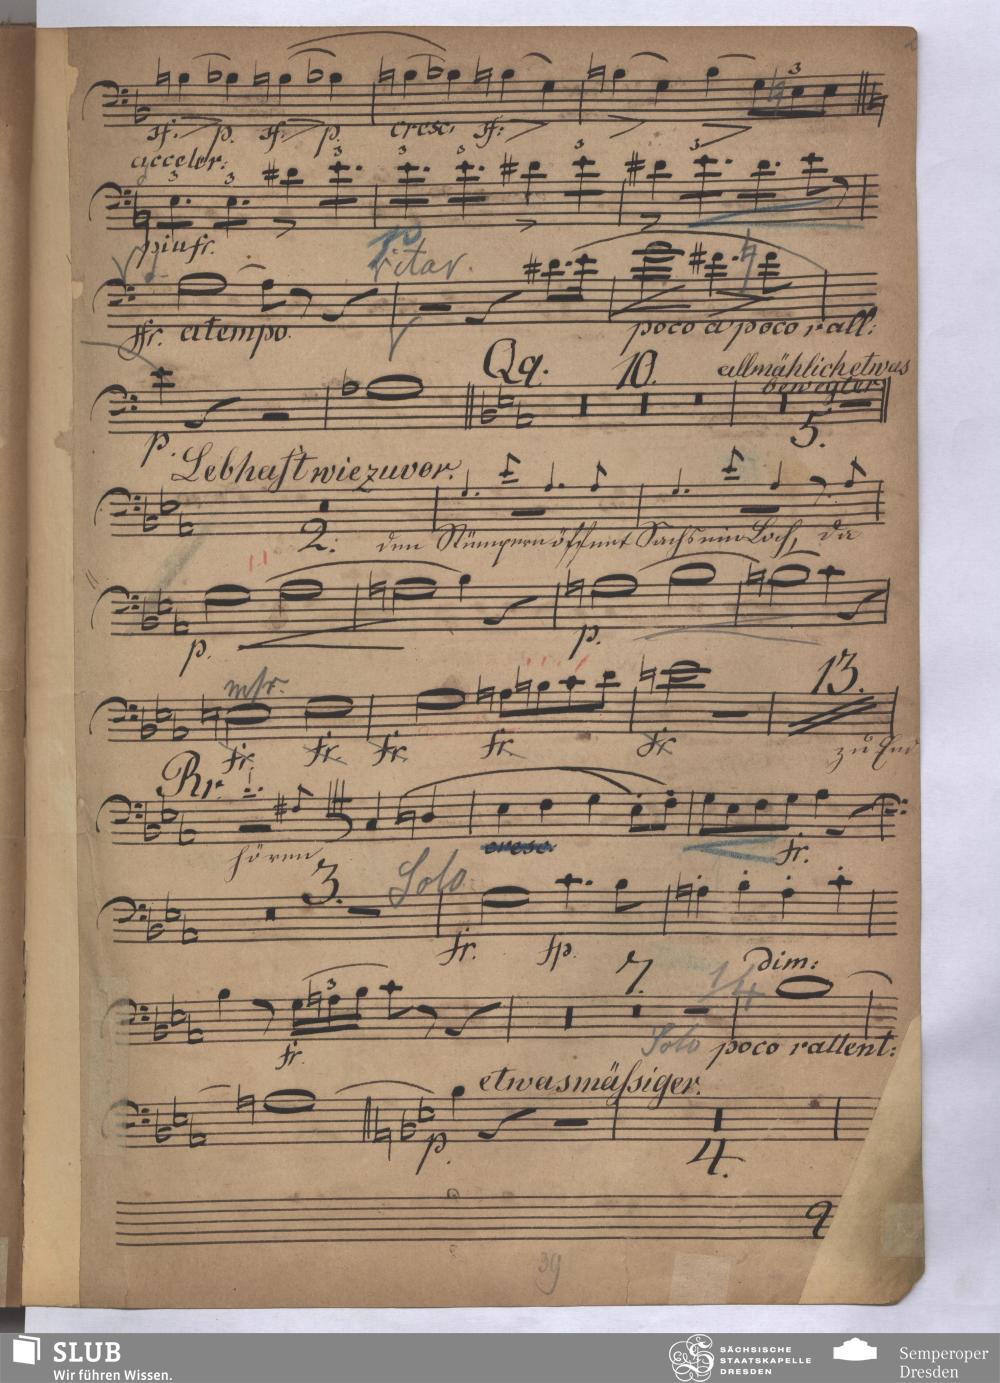 sf. p. sf. p. cresc. sf. 3
acceler:
3 3 3 3 3 3 3
piu fr. p
ritar.
ffr. a tempo. poco a poco rall:
Qq. 10. allmählich etwas
bewegter
p. 5.
Lebhaft wie zuvor.
2. den Stümpern öffnet Sachs ein Loch, da
p. p.
mfr. 13.
fr. fr. fr. fr. fr. zu End
Rr.
hören cresc. fr.
3. Solo
fr. fp.
3 7. 14 dim:
fr. Solo poco rallent:
etwas mäßiger.
p. 4.
9
39
SLUB
Wir führen Wissen.
SÄCHSISCHE
STAATSKAPELLE
DRESDEN
Semperoper
Dresden